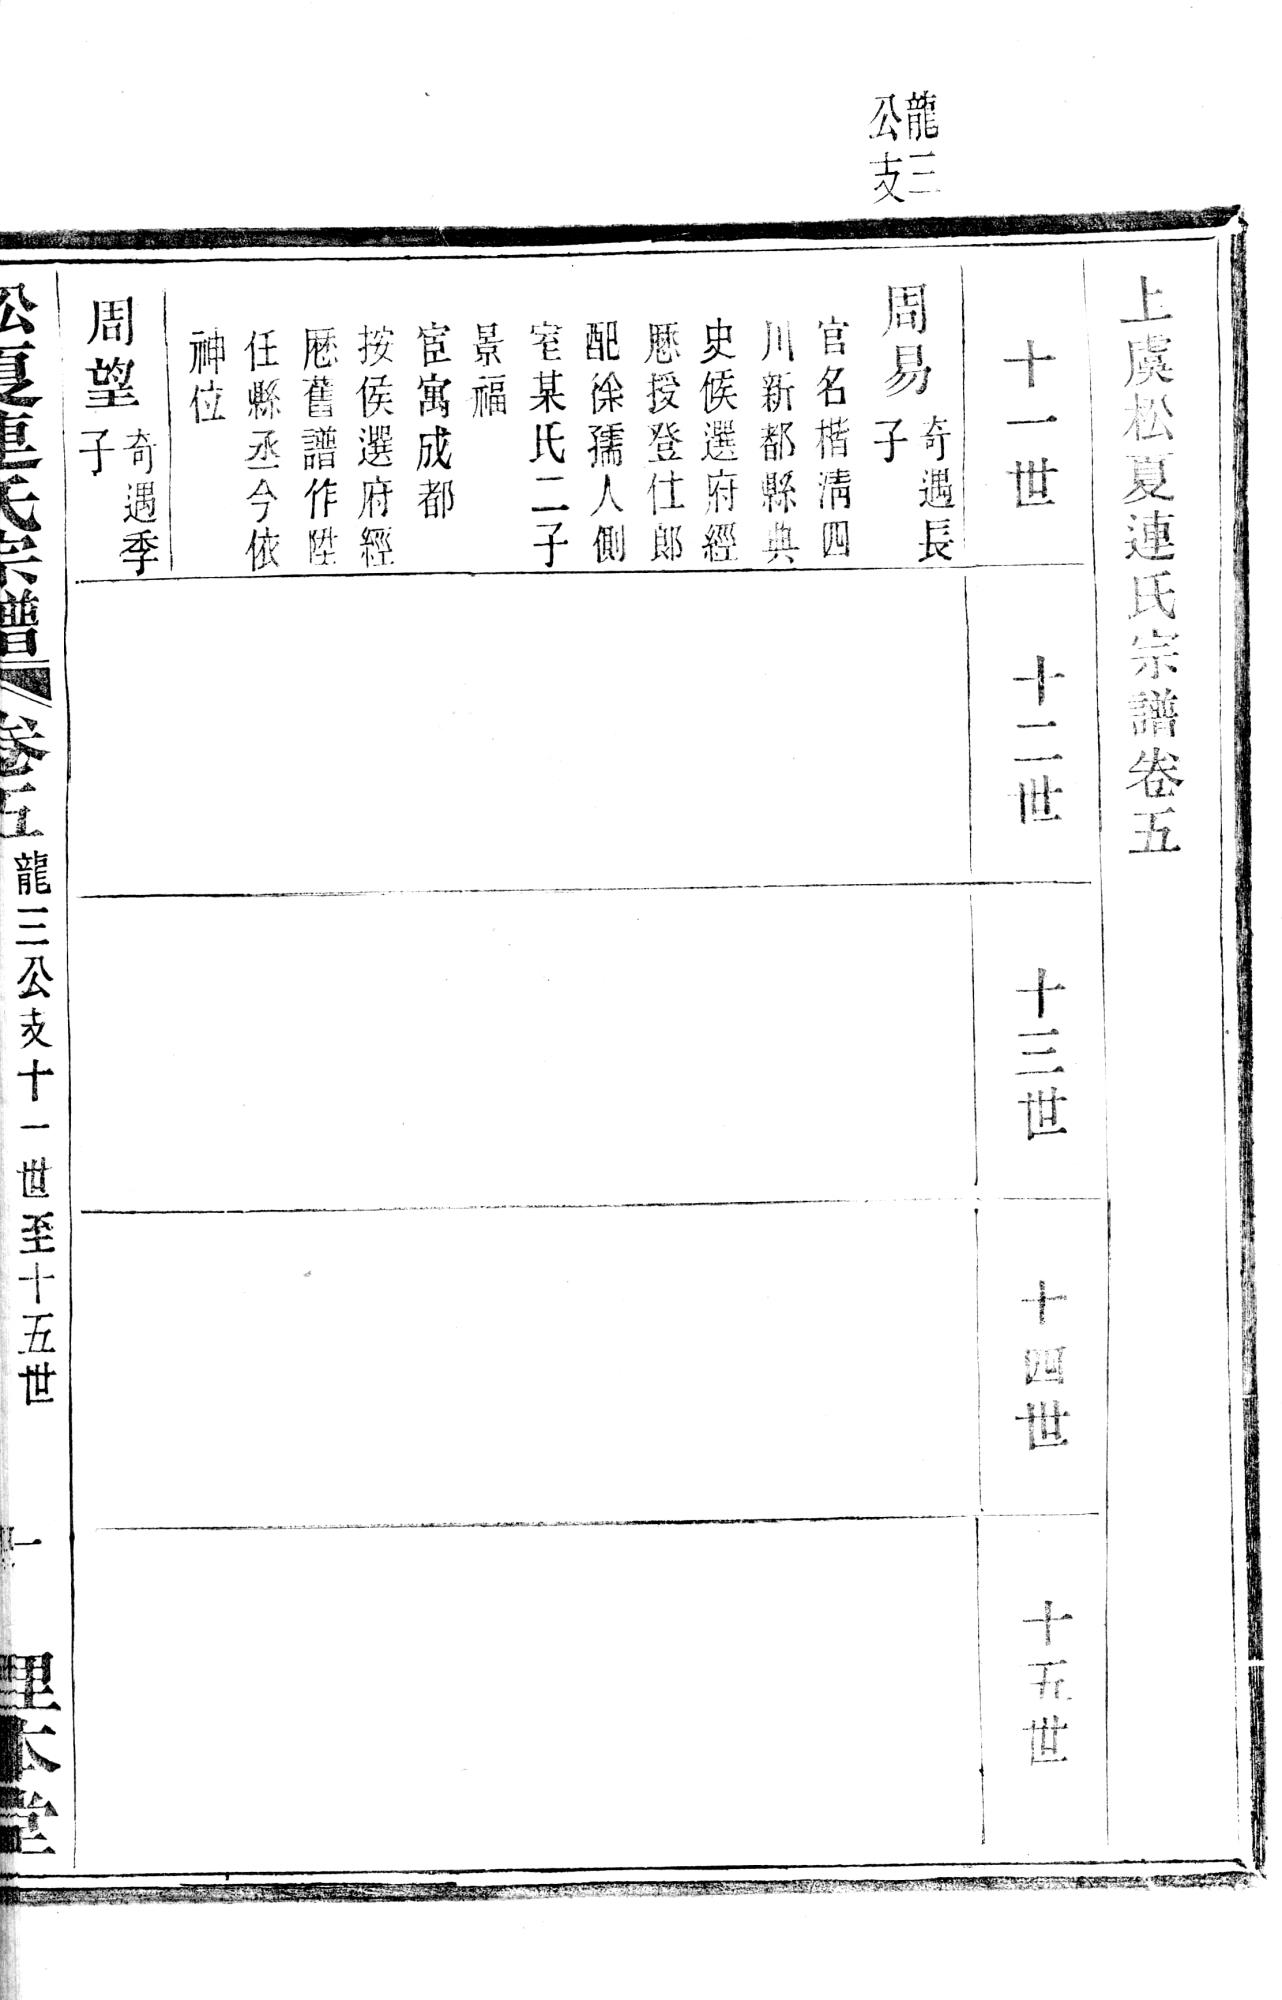 龍三
公支
上虞松夏連氏宗譜卷五
十一世
十二世
十三世
十四世
十五世
周易
奇遇長
子
官名楷淸四
川新都縣典
史候選府經
厯授登仕郎
配徐孺人側
室某氏二子
景福
宦寓成都
按侯選府經
厯舊譜作陞
任縣丞今依
神位
周望
奇遇季
子
松夏連氏宗譜
卷五
龍三公支十一世至十五世
一
理本堂